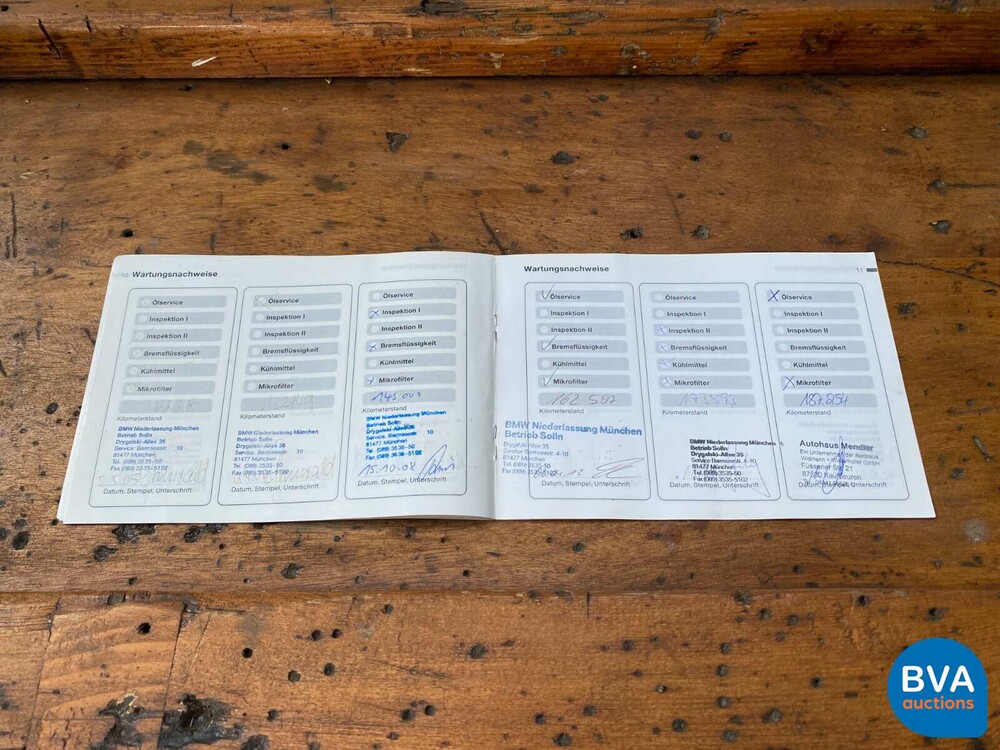 Wartungsnachweise
Ölservice
Inspektion I
Inspektion II
Bremsflüssigkeit
Kühlmittel
Mikrofilter
Kilometerstand
BMW Niederlassung München
Betrieb Solln
Drygalski-Allee 35
81477 München
Tel. (089) 3535-50
Fax (089) 3535-5102
Datum, Stempel, Unterschrift
Ölservice
Inspektion I
Inspektion II
Bremsflüssigkeit
Kühlmittel
Mikrofilter
BMW Niederlassung München
Betrieb Solln
Drygalski-Allee 35
81477 München
Tel. (089) 3535-50
Fax (089) 3535-5102
Datum, Stempel, Unterschrift
Ölservice
Inspektion I
Inspektion II
Bremsflüssigkeit
Kühlmittel
Mikrofilter
145 003
Kilometerstand
BMW Niederlassung München
Betrieb Solln
Drygalski-Allee 35
81477 München
Tel. (089) 3535-50
Fax (089) 3535-5102
15.10.08
Datum, Stempel, Unterschrift
Wartungsnachweise
11
Ölservice
Inspektion I
Inspektion II
Bremsflüssigkeit
Kühlmittel
Mikrofilter
162 592
Kilometerstand
BMW Niederlassung München
Betrieb Solln
Drygalski-Allee 35
Service Barmseestr. 4-10
81477 München
Tel (089) 3535-50
Fax (089) 3535-5102
Datum, Stempel, Unterschrift
Ölservice
Inspektion I
Inspektion II
Bremsflüssigkeit
Kühlmittel
Mikrofilter
173593
Kilometerstand
BMW Niederlassung München
Betrieb Solln
Drygalski-Allee 35
Service Barmseestr. 4-10
81477 München
Tel (089) 3535-50
Fax (089) 3535-5102
Datum, Stempel, Unterschrift
Ölservice
Inspektion I
Inspektion II
Bremsflüssigkeit
Kühlmittel
Mikrofilter
187.854
Kilometerstand
Autohaus Mendler
Ein Unternehmen der Autohaus
Füssener Str. 21
87600 Kaufbeuren
Datum, Stempel, Unterschrift
BVA
auctions